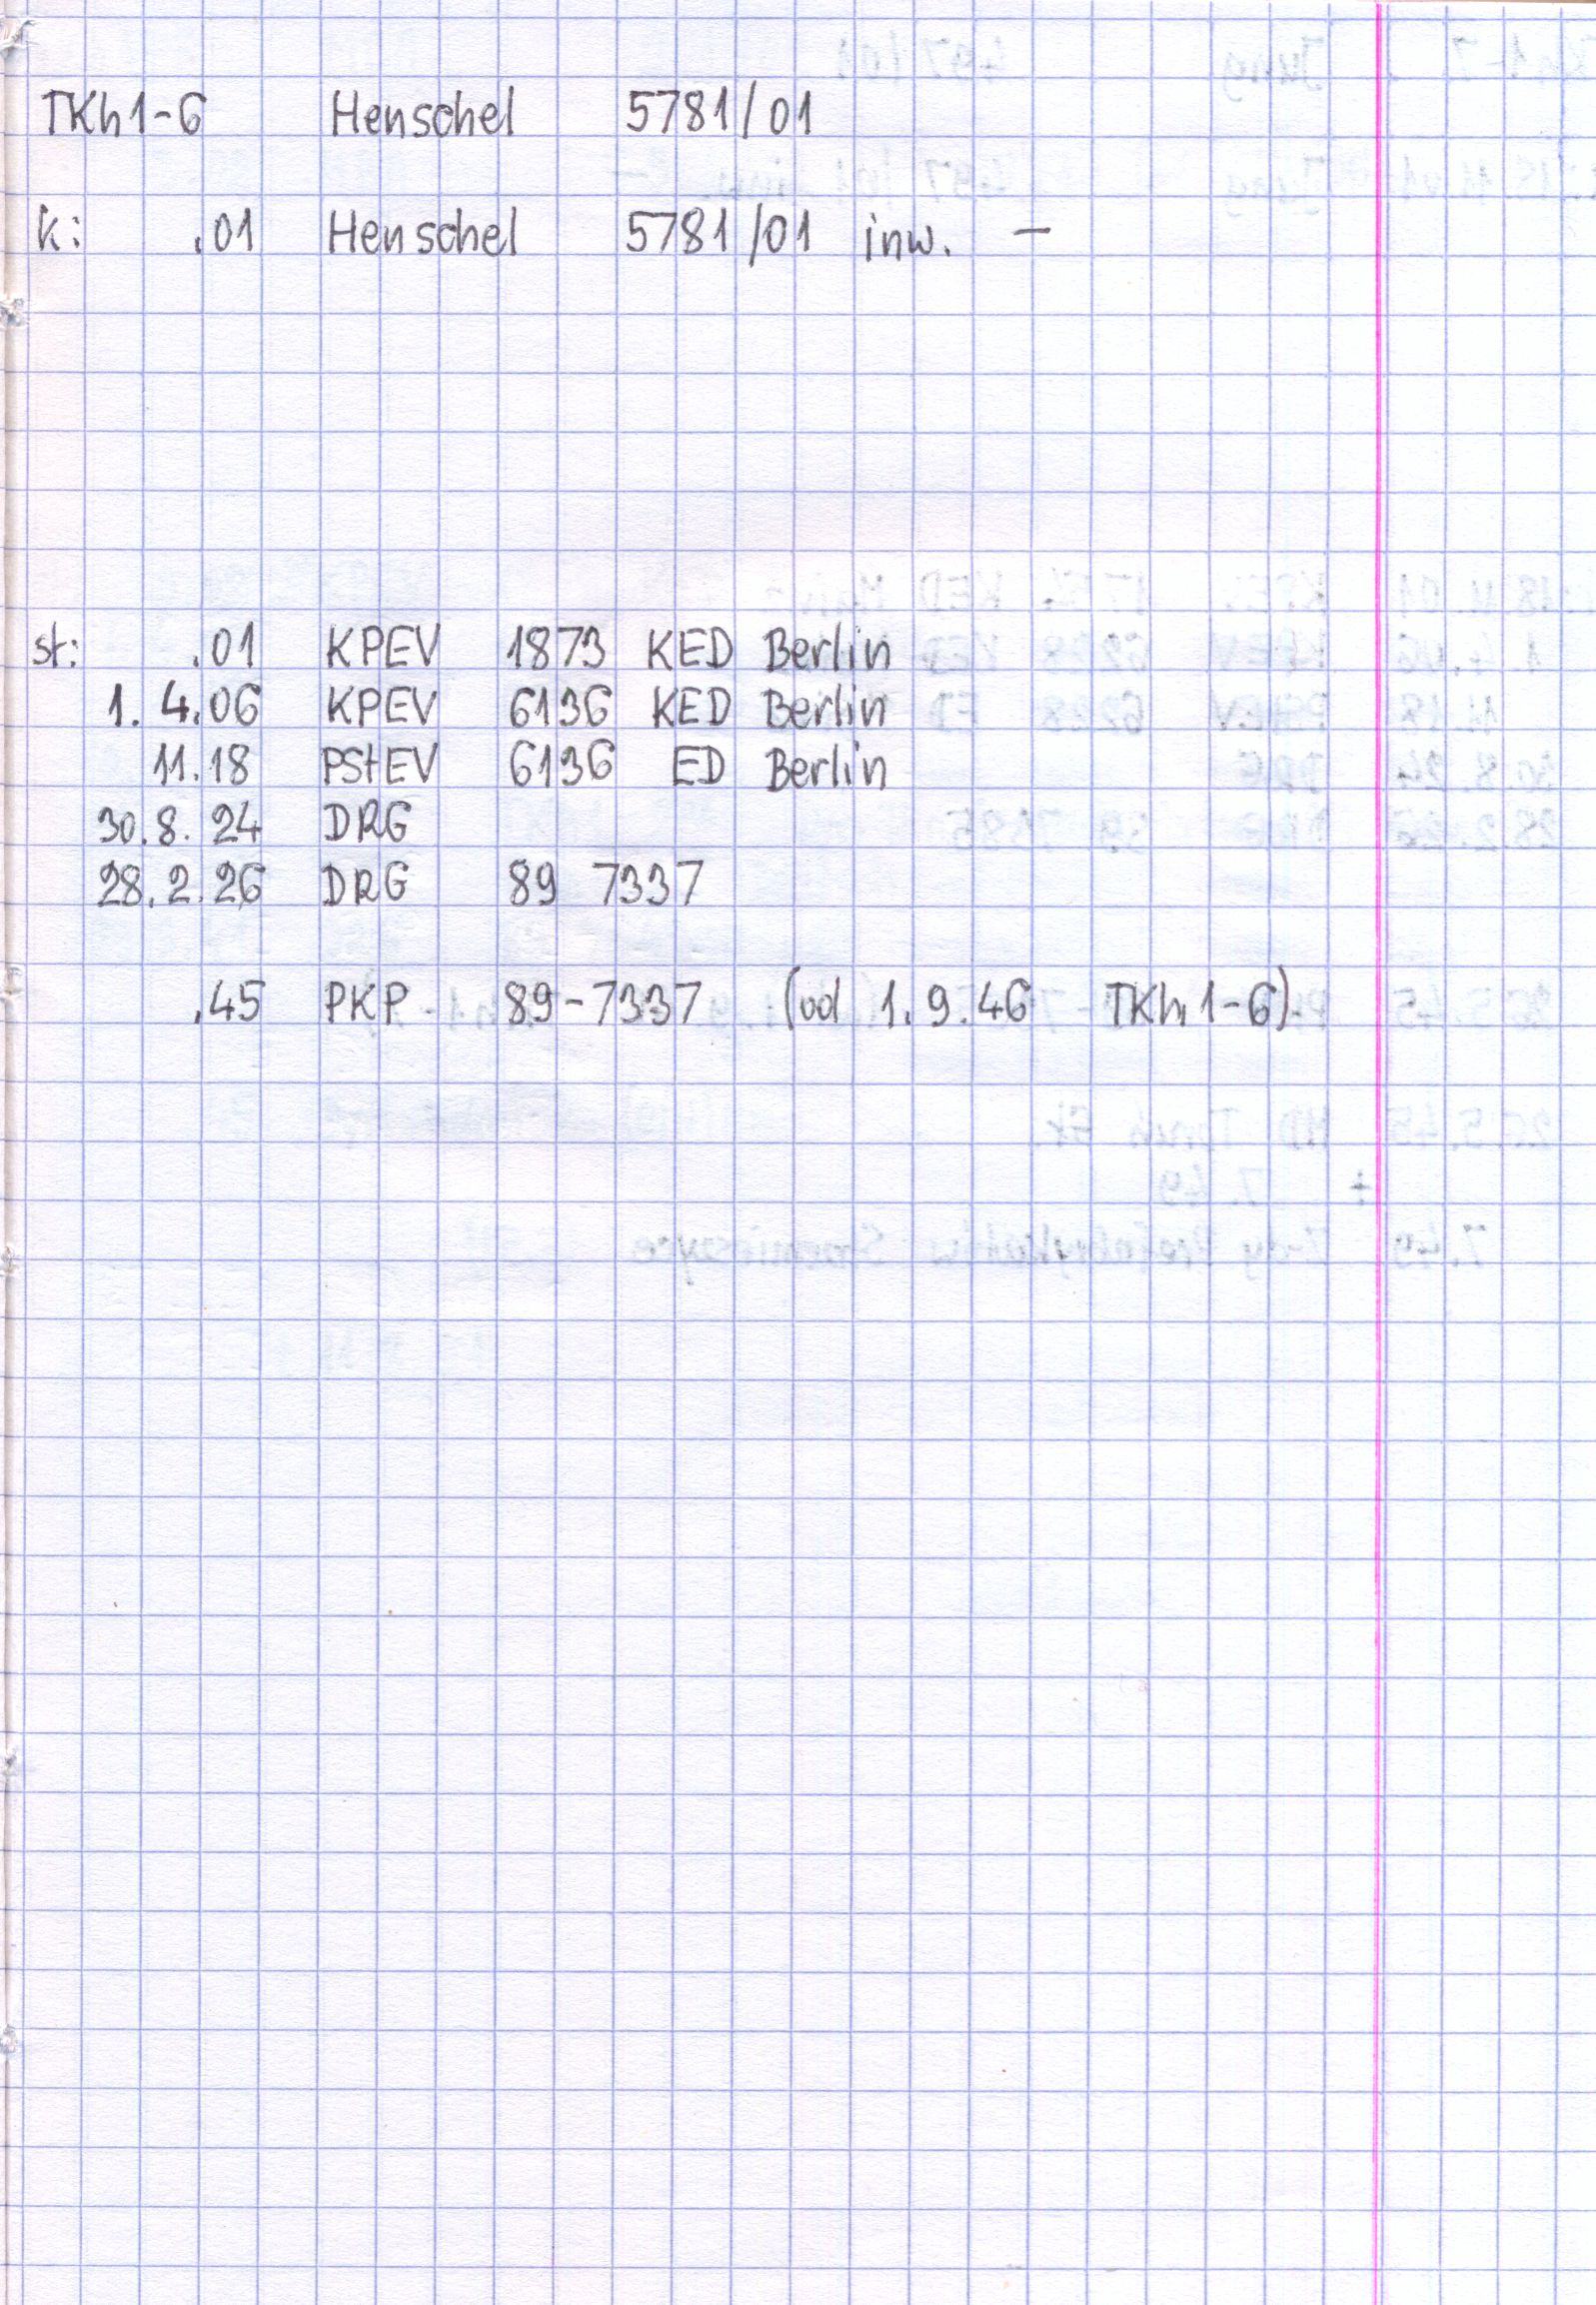 TKh1-6 Henschel 5781/01
k: .01 Henschel 5781/01 inw. —
st: .01 KPEV 1873 KED Berlin
1.4.06 KPEV 6136 KED Berlin
11.18 PStEV 6136 ED Berlin
30.8.24 DRG
28.2.26 DRG 89 7337
.45 PKP 89-7337 (od 1.9.46 TKh1-6)